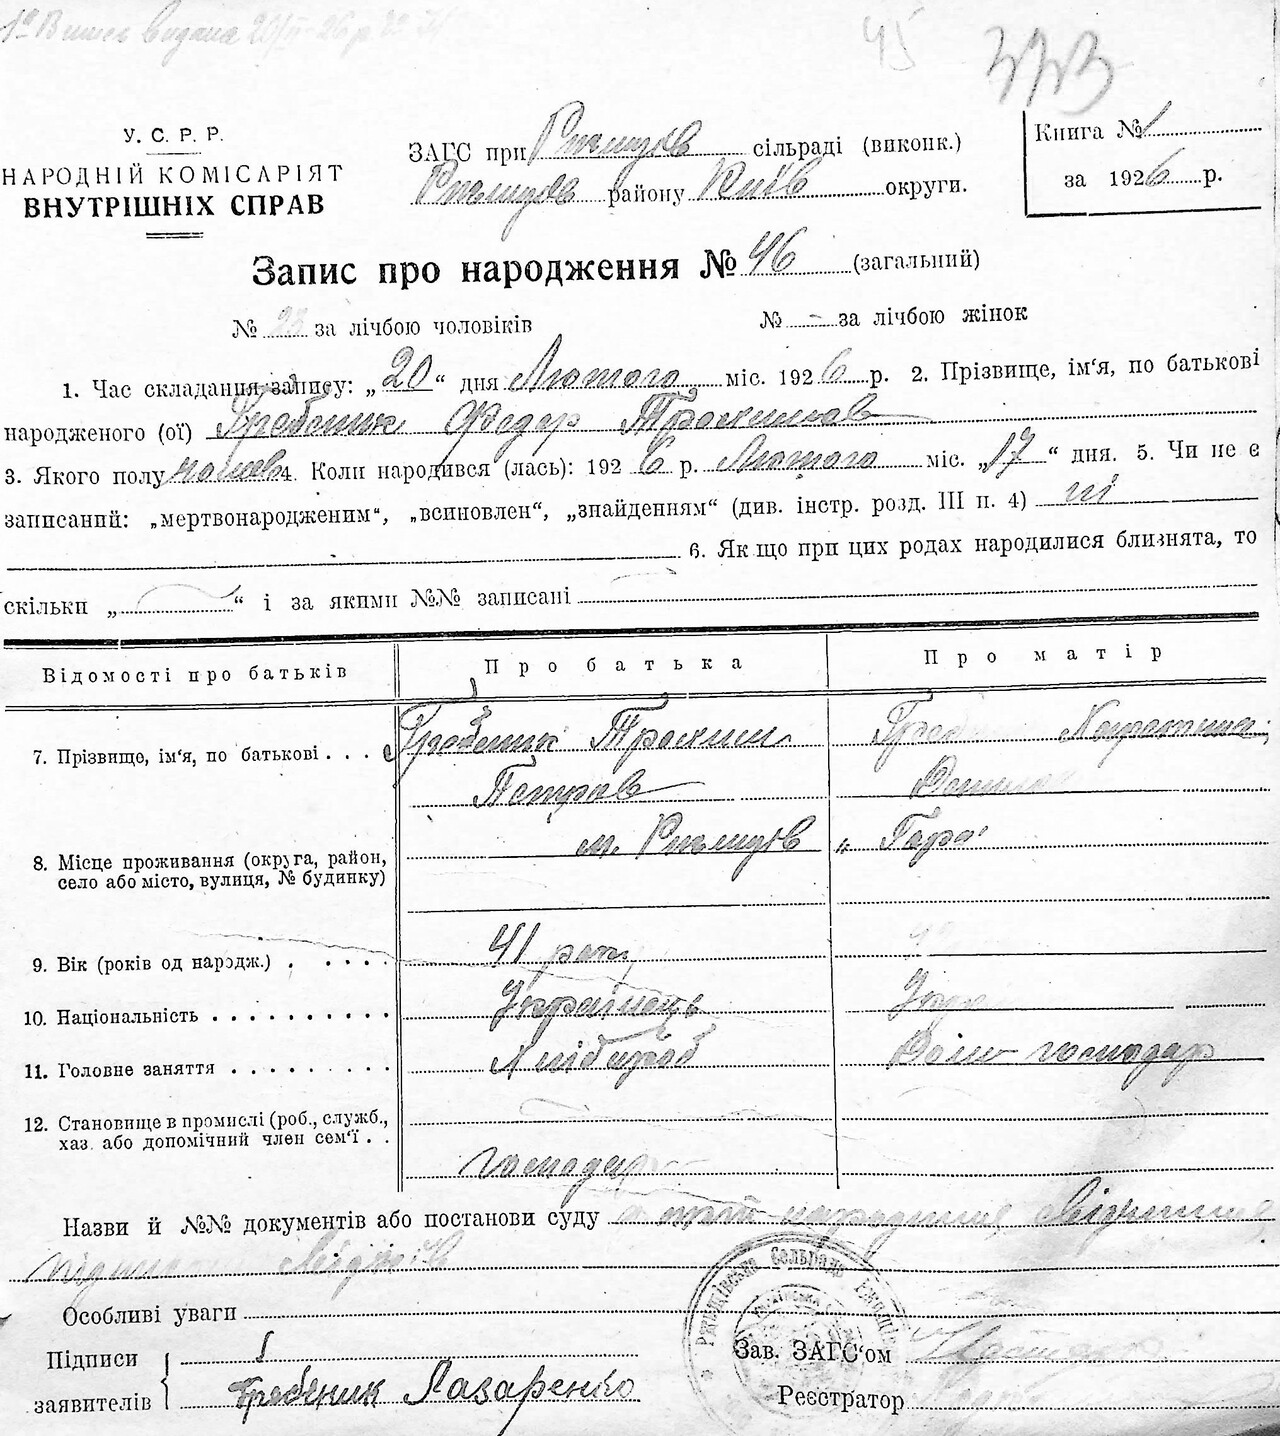 45
373
У. С. Р. Р.
НАРОДНІЙ КОМІСАРІЯТ
ВНУТРІШНІХ СПРАВ
ЗАГС при Ржищів сільраді (виконк.)
Ржищів району Київ округи.
Книга № 1
за 1926 р.
Запис про народження № 46 (загальний)
№ 23 за лічбою чоловіків № - за лічбою жінок
1. Час складання запису: „20“ дня Лютого міс. 1926 р. 2. Прізвище, ім‘я, по батькові
народженого (ої) Гребеник Федор Трохимов
3. Якого полу чолов 4. Коли народився (лась): 1926 р. Лютого міс. „17“ дня. 5. Чи не є
записаний: „мертвонародженим“, „всиновлен“, „знайденням“ (див. інстр. розд. III п. 4) ні
6. Якщо при цих родах народилися близнята, то
скільки „ “ і за якими №№ записані
Відомості про батьків Про батька Про матір
7. Прізвище, ім‘я, по батькові . . . Гребеник Трохим
Петров
8. Місце проживання (округа, район,
село або місто, вулиця, № будинку)
м. Ржищів „ Гора
9. Вік (років од народж.) . . . . . 41 рок
10. Національність . . . . . . . . . . Українець Укр
11. Головне заняття . . . . . . . . . Хлібороб Дом господар
12. Становище в промислі (роб., служб.,
хаз. або допомічний член сем‘ї . .
господар
Назви й №№ документів або постанови суду
Особливі уваги
Підписи
заявителів Гребеник Лазаренко
Зав. ЗАГС‘ом
Реєстратор